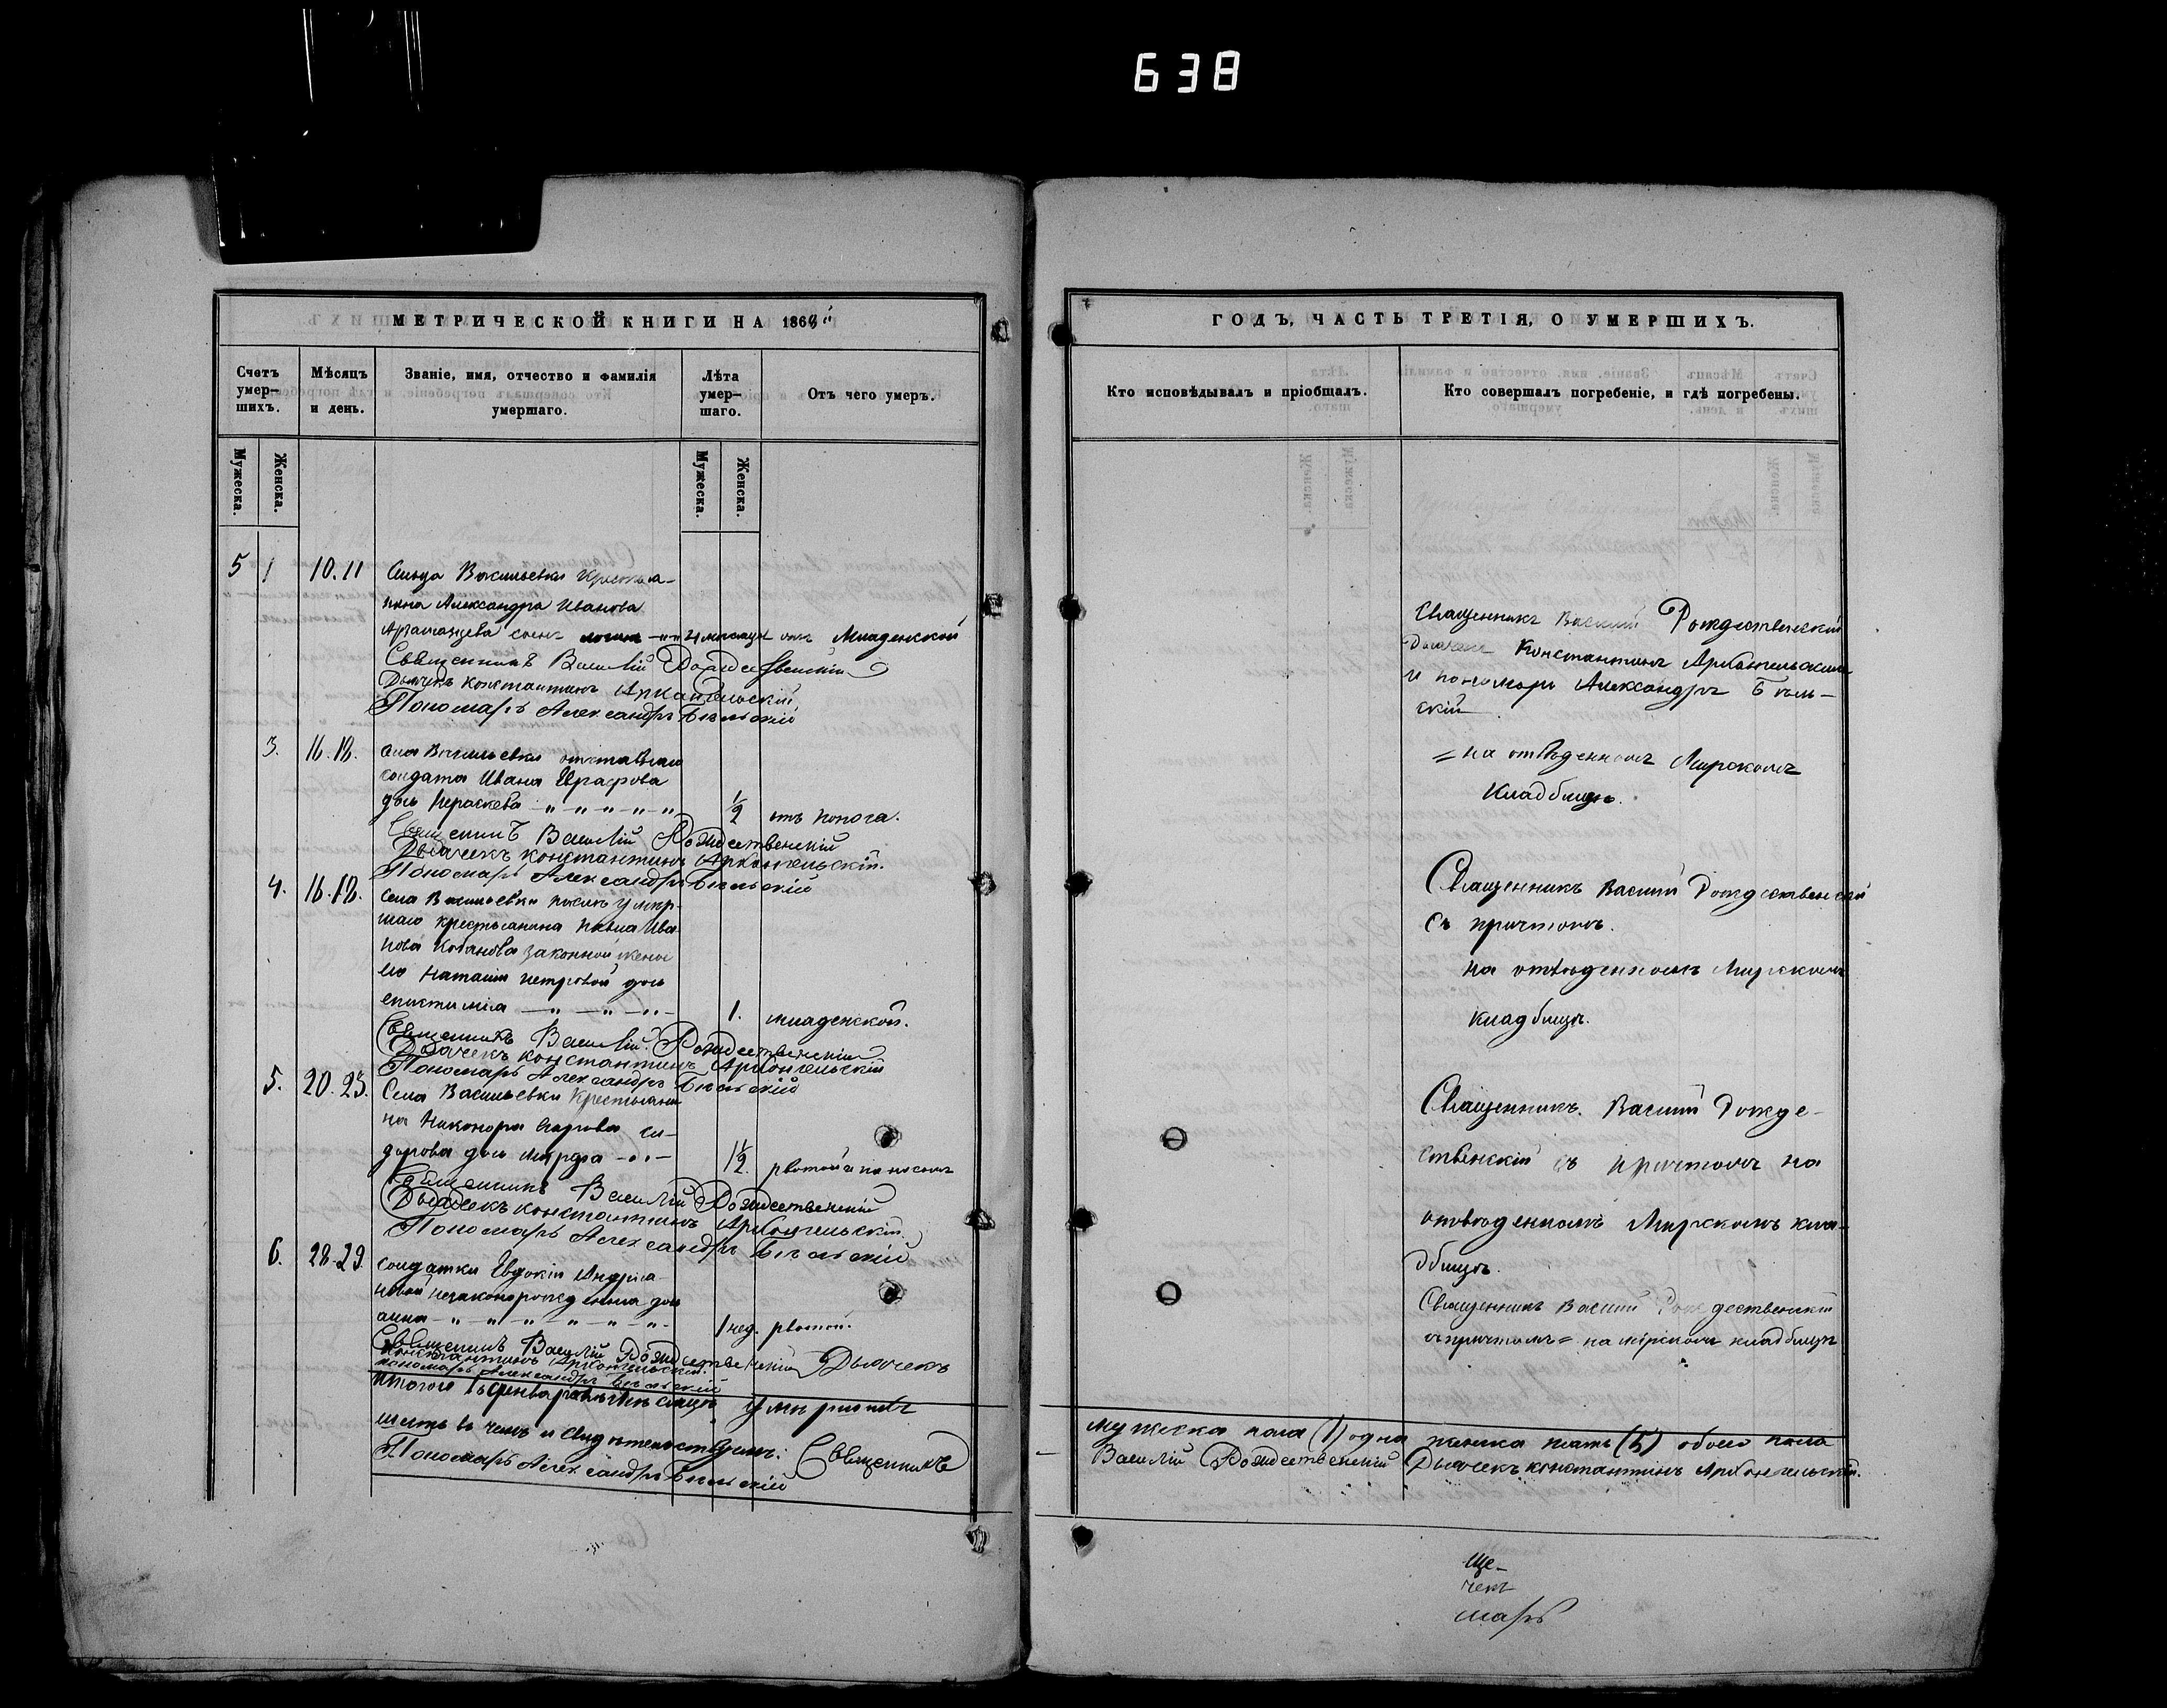 638
МЕТРИЧЕСКОЙ КНИГИ НА 186
Счетъ умер-шихъ.
Мѣсяцъ и день.
Званіе, имя, отчество и фамилія умершаго.
Лѣта умер-шаго.
Отъ чего умеръ.
Мужеска.
Женска.
Мужеска.
Женска.
5 1 10. 11 Села Васильевки крестья-
нина Александра Иванова
сынъ 4 месяца отъ Младенской
Священникъ Василій Рождественскій
Дьячекъ Константинъ Архангельскій
Пономарь Александръ Бѣльскій
3. 16. 18. Села Васильевки отставнаго
солдата Ивана Евграфова
дочь Параскева 1/2 отъ поноса.
Священникъ Василій Рождественскій
Дьячекъ Константинъ Архангельскій.
Пономарь Александръ Бѣльскій
4. 16. 18. Села Васильевки послѣ умер-
шаго крестьянина Павла Ива-
нова Кабанова законной жены
его Наталіи Петровой дочь
Епистимія 1. младенской.
Священникъ Василій Рождественскій
Дьячекъ Константинъ Архангельскій
Пономарь Александръ Бѣльскій
5. 20. 23. Села Васильевки Крестьяни
на Никонора Карпова Си-
дорова дочь Марфа 1 1/2. рвотой и поносомъ
Священникъ Василій Рождественскій
Дьячекъ Константинъ Архангельскій.
Пономарь Александръ Бѣльскій
6. 28. 29. Солдатки Евдокіи Андрия-
новой незаконорожденная дочь
Анна 1 нед. рвотой.
Священникъ Василій Рождественскій Дьячекъ
Константинъ Архангельскій.
Пономарь Александръ Бѣльскій
Итого въ февралѣ мѣсяцѣ умершихъ
шесть въ чемъ и свидѣтельствуемъ: Священникъ
Пономарь Александръ Бѣльскій
ГОДЪ, ЧАСТЬ ТРЕТІЯ, О УМЕРШИХЪ.
Кто исповѣдывалъ и пріобщалъ.
Кто совершалъ погребеніе, и гдѣ погребены.
Священникъ Василій Рождественскій
Дьячекъ Константинъ Архангельскій
и пономарь Александръ Бѣль-
скій
= на отвѣденномъ Мирскомъ
Кладбищѣ.
Священникъ Василій Рождественскій
съ причтомъ.
на отвѣденномъ Мирскомъ
кладбищѣ.
Священникъ. Василій Рожде-
ственскій съ причтомъ на
отвѣденномъ Мирскомъ кла-
дбищѣ.
Священникъ Василій Рождественскій
съ причтомъ = на мірскомъ кладбищѣ
мужеска пола (1) одна женска пять (5) обоего пола
Василій Рождественскій Дьячекъ Константинъ Архангельскій.
ще-
чекъ
марь